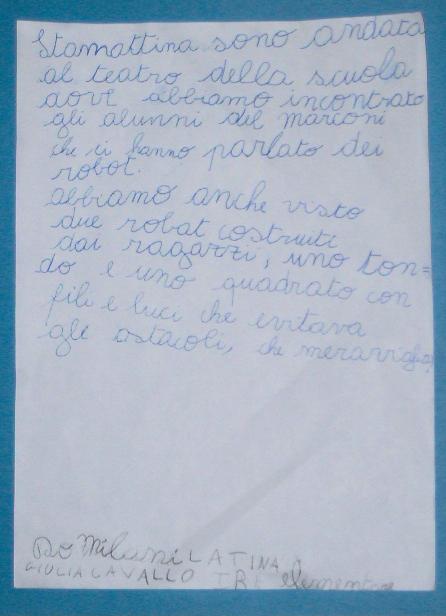 Stamattina sono andata
al teatro della scuola
dove abbiamo incontrato
gli alunni del marconi
che ci hanno parlato dei
robot.
abbiamo anche visto
due robat costruiti
dai ragazzi, uno ton=
do e uno quadrato con
fili e luci che evitava
gli ostacoli, che meraviglia
Do Milani LATINA
GIULIA CAVALLO TRE elementare